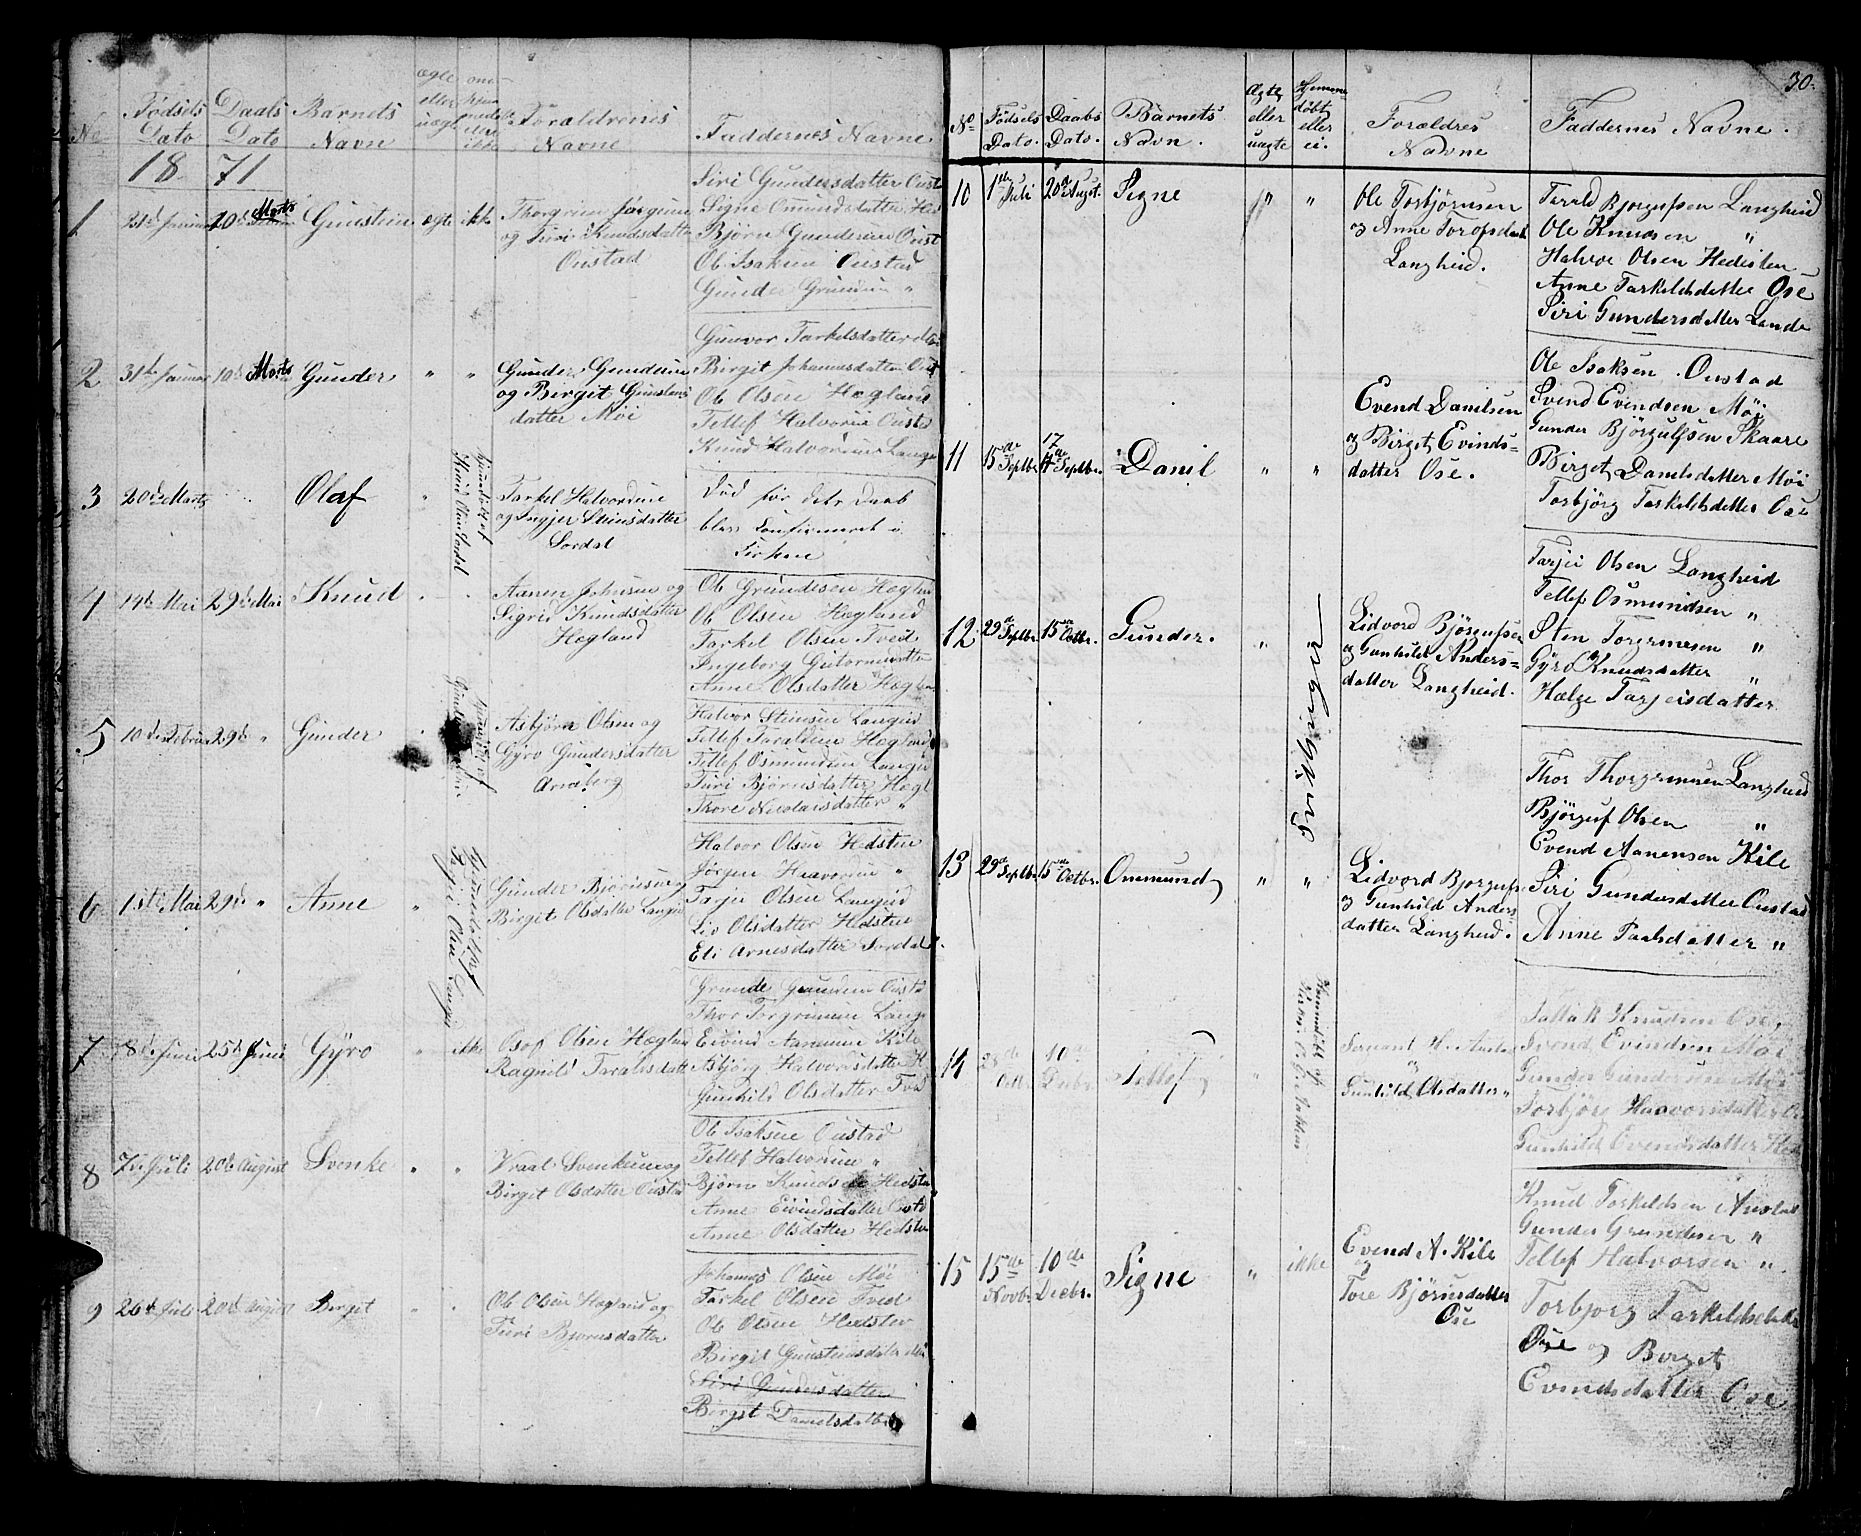 No
Fødsels Dato
Daabs Dato
Barnets Navn
ægte eller uægte
Forældrenes Navne
Faddernes Navne
1871
1
31te Januar
10de Marts
Gunstein
ægte
ikke
og Turi Knudsdatter
Oustad
Siri Gundersdatter Oust
Signe Omundsdatter
Bjørn Gundersen Oust
Ole Isaksen Oustad
Gunder "
2
31te Januar
10de Marts
Gunder
"
"
Gunder Gundersen
og Birgit Gunsteins
datter Møi
Gunvor Tarkelsdatter
Birgit Johannesdatter Oust
Ole Olsen Hægland
Tellef Halvorsen Oustad
Knud Halvorsen Lange
3
20de Marts
Olaf
"
Tarkel Halvordsen
og Ingjer Steinsdatter
Sordal
Død før dets Daab
blev Confirmeret i
Kirken
4
14de Mai
29de Mai
Knud
Aanen Johnsen og
Sigrid Knudsdatter
Hægland
Ole Grundesen Hægland
Ole Olsen Hægland
Tarkel Olsen Tved
Ingeborg Gutormsdatter
Anne Olsdatter Hægland
5
10de Februar
29de "
Gunder
Asbjørn Olsen og
Gyro Gundersdatter
Halvor Steinsen Langeid
Tellef Taraldsen Hægland
Tellef Osmundsen Langeid
Turi Bjørnsdatter Hægl
Thore Nicolaisdatter "
6
1ste Mai
29de "
Anne
"
Gunder Bjørnsen og
Birgit Olsdatter Langeid
Halvor Olsen Hedsten
Jørgen "
Tarjei Olsen Langeid
Liv Olsdatter Hedsten
Eli Arnesdatter Sordal
7
18de Juni
25de Juni
Gyro
"
ikke
Osof Olsen Hægland
Ragnild Taraldsdatter
Grunde Gundersen Oustad
Thor Torgrimsen Lange
Eivind Aanensen Kile
Asbjørg Halvorsdatter H
Gunhild Olsdatter Tved
8
7de Juli
20de August
Svenke
"
"
Vraal Svenkesen og
Birgit Olsdatter Oustad
Ole Isaksen Oustad
Tellef Halvorsen "
Bjørn Knudsen Hedsten
Anne Eivindsdatter Oustad
Anne Olsdatter Hedsten
9
26de Juli
20de August
Birgit
"
"
Ole Olsen Hægland og
Turi Bjørnsdatter
Johannes Olsen Møi
Tarkel Olsen Tved
Ole Olsen Hedsten
Birgit Gunsteinsdatter Møi
Siri Gundersdatter
Birgit Danielsdatter
30.
No
Fødsels Dato.
Daabs Dato.
Barnets Navn.
Ægte eller uægte
Hjemmedøbt eller ei.
Forældres Navne
Faddernes Navne.
10
1ste Juli
20de August.
Signe
"
"
Ole Torbjørnsen
og Anne Torofsdat
Langheid.
Tarald Bjorgufsen Langheid
Ole Knudsen "
Halvor Olsen Hedesten
Anne Tarkeldsdatter Ose
Siri Gundersdatter Lande
11
15de Septbr.
17de Septbr.
Daniel
"
"
Evend Danilsen
og Birget Evinds-
datter Ose.
Ole Isaksen Oustad
Svend Evendsen Møi
Gunder Bjørgulfsen Skaare
Birget Danielsdatter Møi
Torbjörg Tarkeldsdatter Ose
12
29de Septbr.
15de Octbr.
Gunder.
"
Lidvord Bjørgufsen
og Gunhild Anders-
datter Langheid.
Tarjei Olsen Langheid
Tellef Osmundsen "
Sten Torgrimesen "
Gyro Knudsdatter "
Hælge Tarjeisdatter
13
29de Septbr.
15de Octbr.
Ommund
"
"
Lidvord Bjorgufs
og Gunhild Anders
datter Langheid.
Thor Thorgrimsen Langheid
Bjørguf Olsen "
Evend Aanensen Kile
Siri Gundersdatter Oustad
Anne Paalsdatter "
14
28de Octb
10de Decbr.
Tellef
"
Gunhild Olsdatter "
Tallak Knudsen Ose
Svend Evindsen Møi
Gunder Gundersen Møi
Torbjörg Haavorsdatter O
Gunhild Evendsdatter
15
15de Novbr.
10de Decbr.
Signe
"
ikke
Evend A. Kile
og
Tore Bjørnsdatter
Ose
Knud Torkeldsen Austad
Gunder Grundesen "
Tellef Halvorsen "
Torbjorg Tarkeldsdatter
Ose og Birget
Evendsdatter Ose